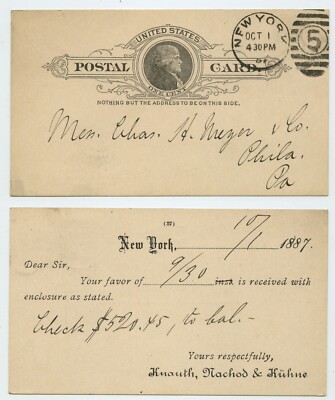 UNITED STATES
POSTAL CARD.
ONE CENT
NOTHING BUT THE ADDRESS TO BE ON THIS SIDE.
NEW YORK
OCT 1
430PM
87
5
Mess. Chas. H. Meyer & Co.
Phila.
Pa
(37)
New York, 10/1 1887.
Dear Sir,
Your favor of 9/30 inst. is received with
enclosure as stated.
Check $520.45, to bal.-
Yours respectfully,
Knauth, Nachod & Kühne